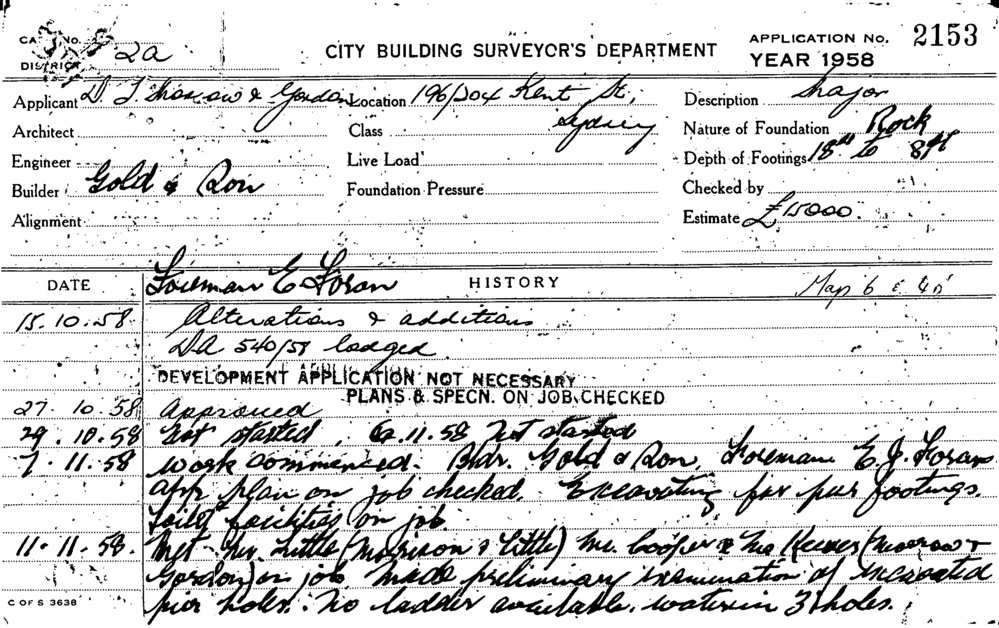 CITY BUILDING SURVEYOR'S DEPARTMENT
APPLICATION No. 2153
YEAR 1958
DISTRICT 2a
Applicant D. T. & Gordon Location 196/204 Kent St, Sydney Description Major
Architect Class Nature of Foundation Rock
Engineer Live Load Depth of Footings 18" to 8ft
Builder Gold & Son Foundation Pressure Checked by
Alignment Estimate £15000.
Foreman E Foran
DATE HISTORY Map 6
15.10.58 Alterations & additions
DA 540/58 lodged
DEVELOPMENT APPLICATION NOT NECESSARY
PLANS & SPECN. ON JOB CHECKED
27.10.58 Approved
29.10.58 Not started. 6.11.58 Not started
7.11.58 Work commenced. Bldr. Gold & Son, Foreman E. J. Foran
app plan on job checked. Excavating for pier footings.
Toilet facilities on job
11.11.58. Met Mr Little (Morrison & Little) Mr. Cooper & Mr (Morrow &
Gordon) on job made preliminary examination of excavated
pier holes. No ladder available. water in 3 holes.
C OF S 3638